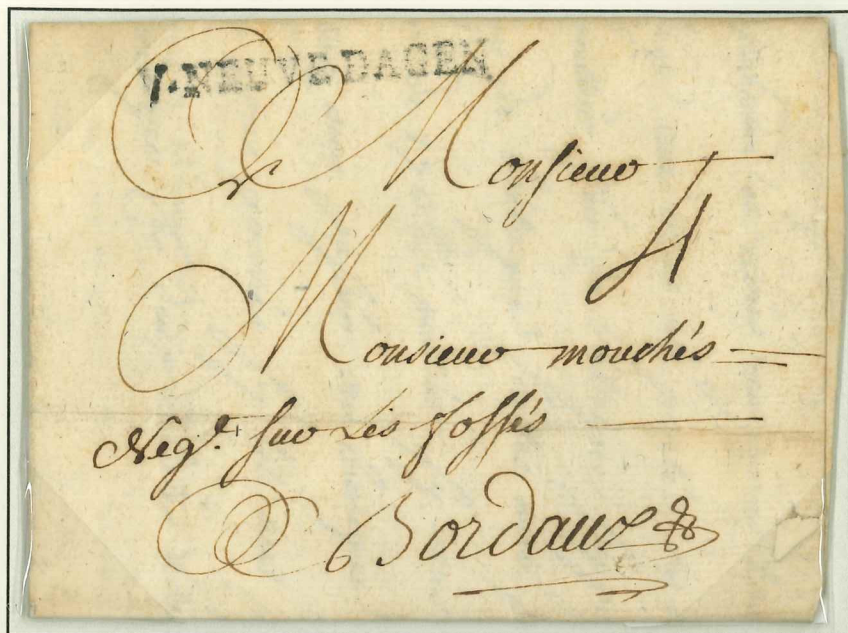 V. NEUVE DAGEN
A Monsieur
4
Monsieur mouchés
Neg.t sur Les fossés
A Bordaux